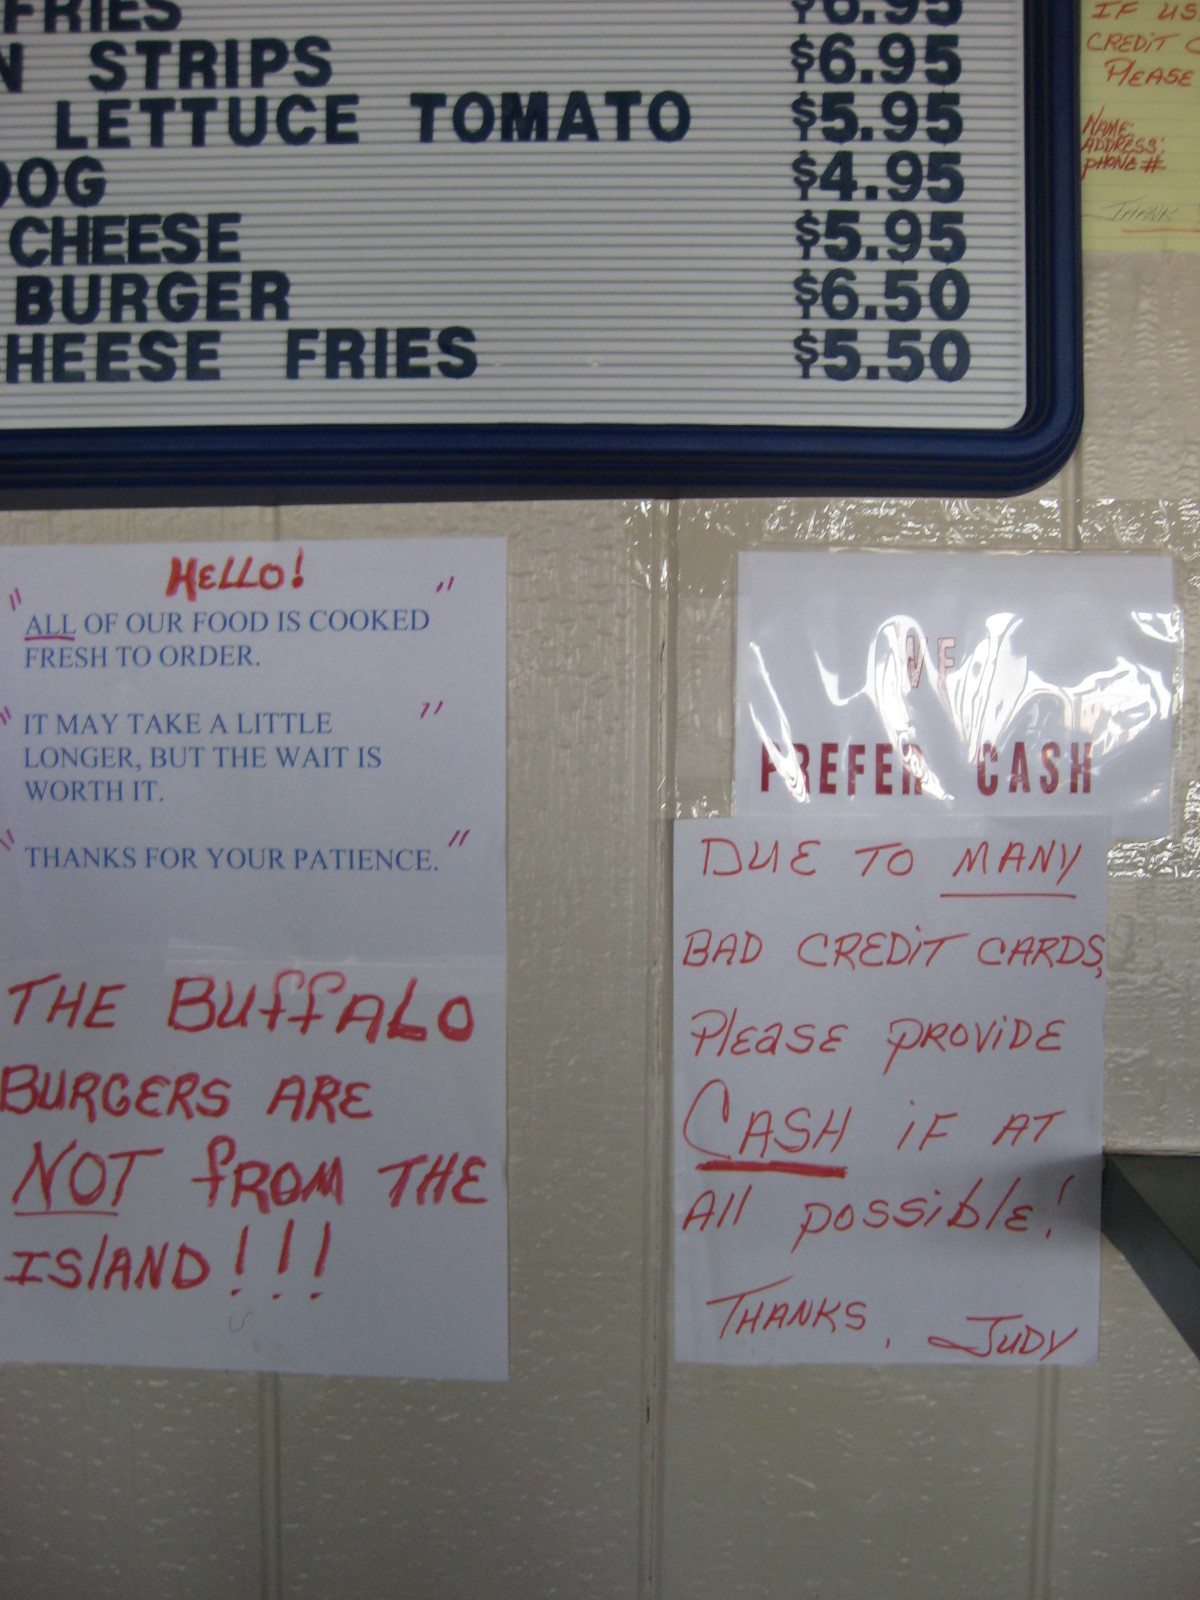 FRIES $6.95
N STRIPS $6.95
LETTUCE TOMATO $5.95
DOG $4.95
CHEESE $5.95
BURGER $6.50
HEESE FRIES $5.50
IF US
CREDIT C
PLEASE
NAME:
ADDRESS:
PHONE #
THANK
HELLO!
"ALL OF OUR FOOD IS COOKED"
FRESH TO ORDER.
"IT MAY TAKE A LITTLE"
LONGER, BUT THE WAIT IS
WORTH IT.
"THANKS FOR YOUR PATIENCE."
THE BUffALO
BURGERS ARE
NOT fROM THE
ISlAND!!!
WE
PREFER CASH
DUE TO MANY
BAD CREDiT CARDS,
PleaSE PROViDE
CASH iF AT
All possible!
THANKS, JUDY